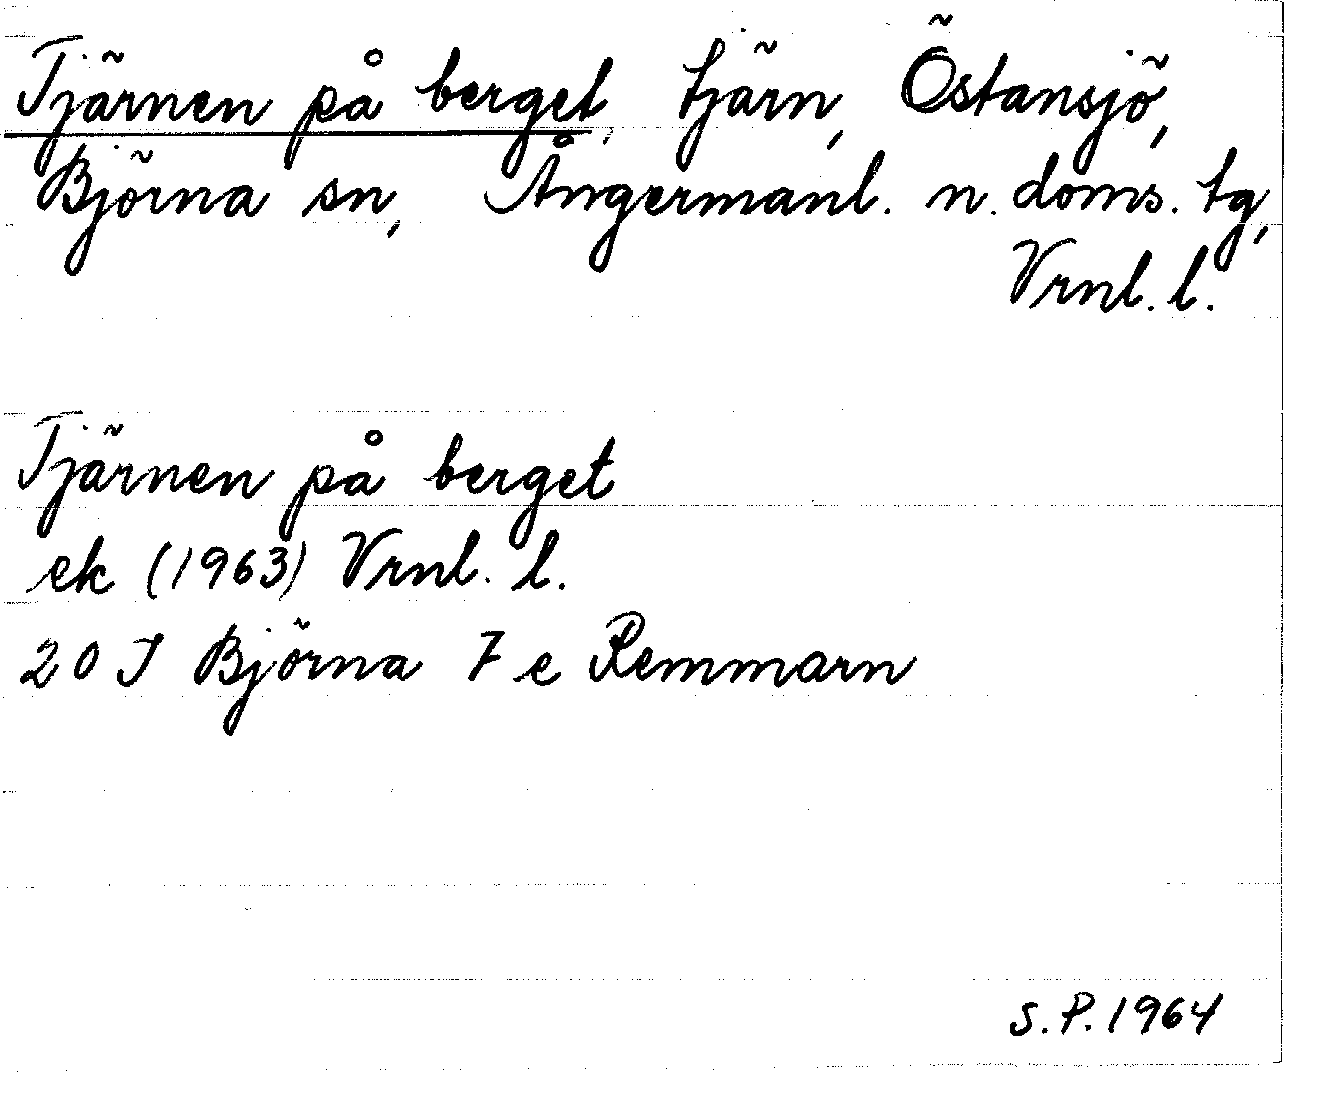 Tjärnen på berget, tjärn, Östansjö,
Björna sn, Ångermanl. n. doms. tg,
Vrnl. l.
Tjärnen på berget
ek (1963) Vrnl. l.
20 J Björna 7 e Remmarn
S.P. 1964